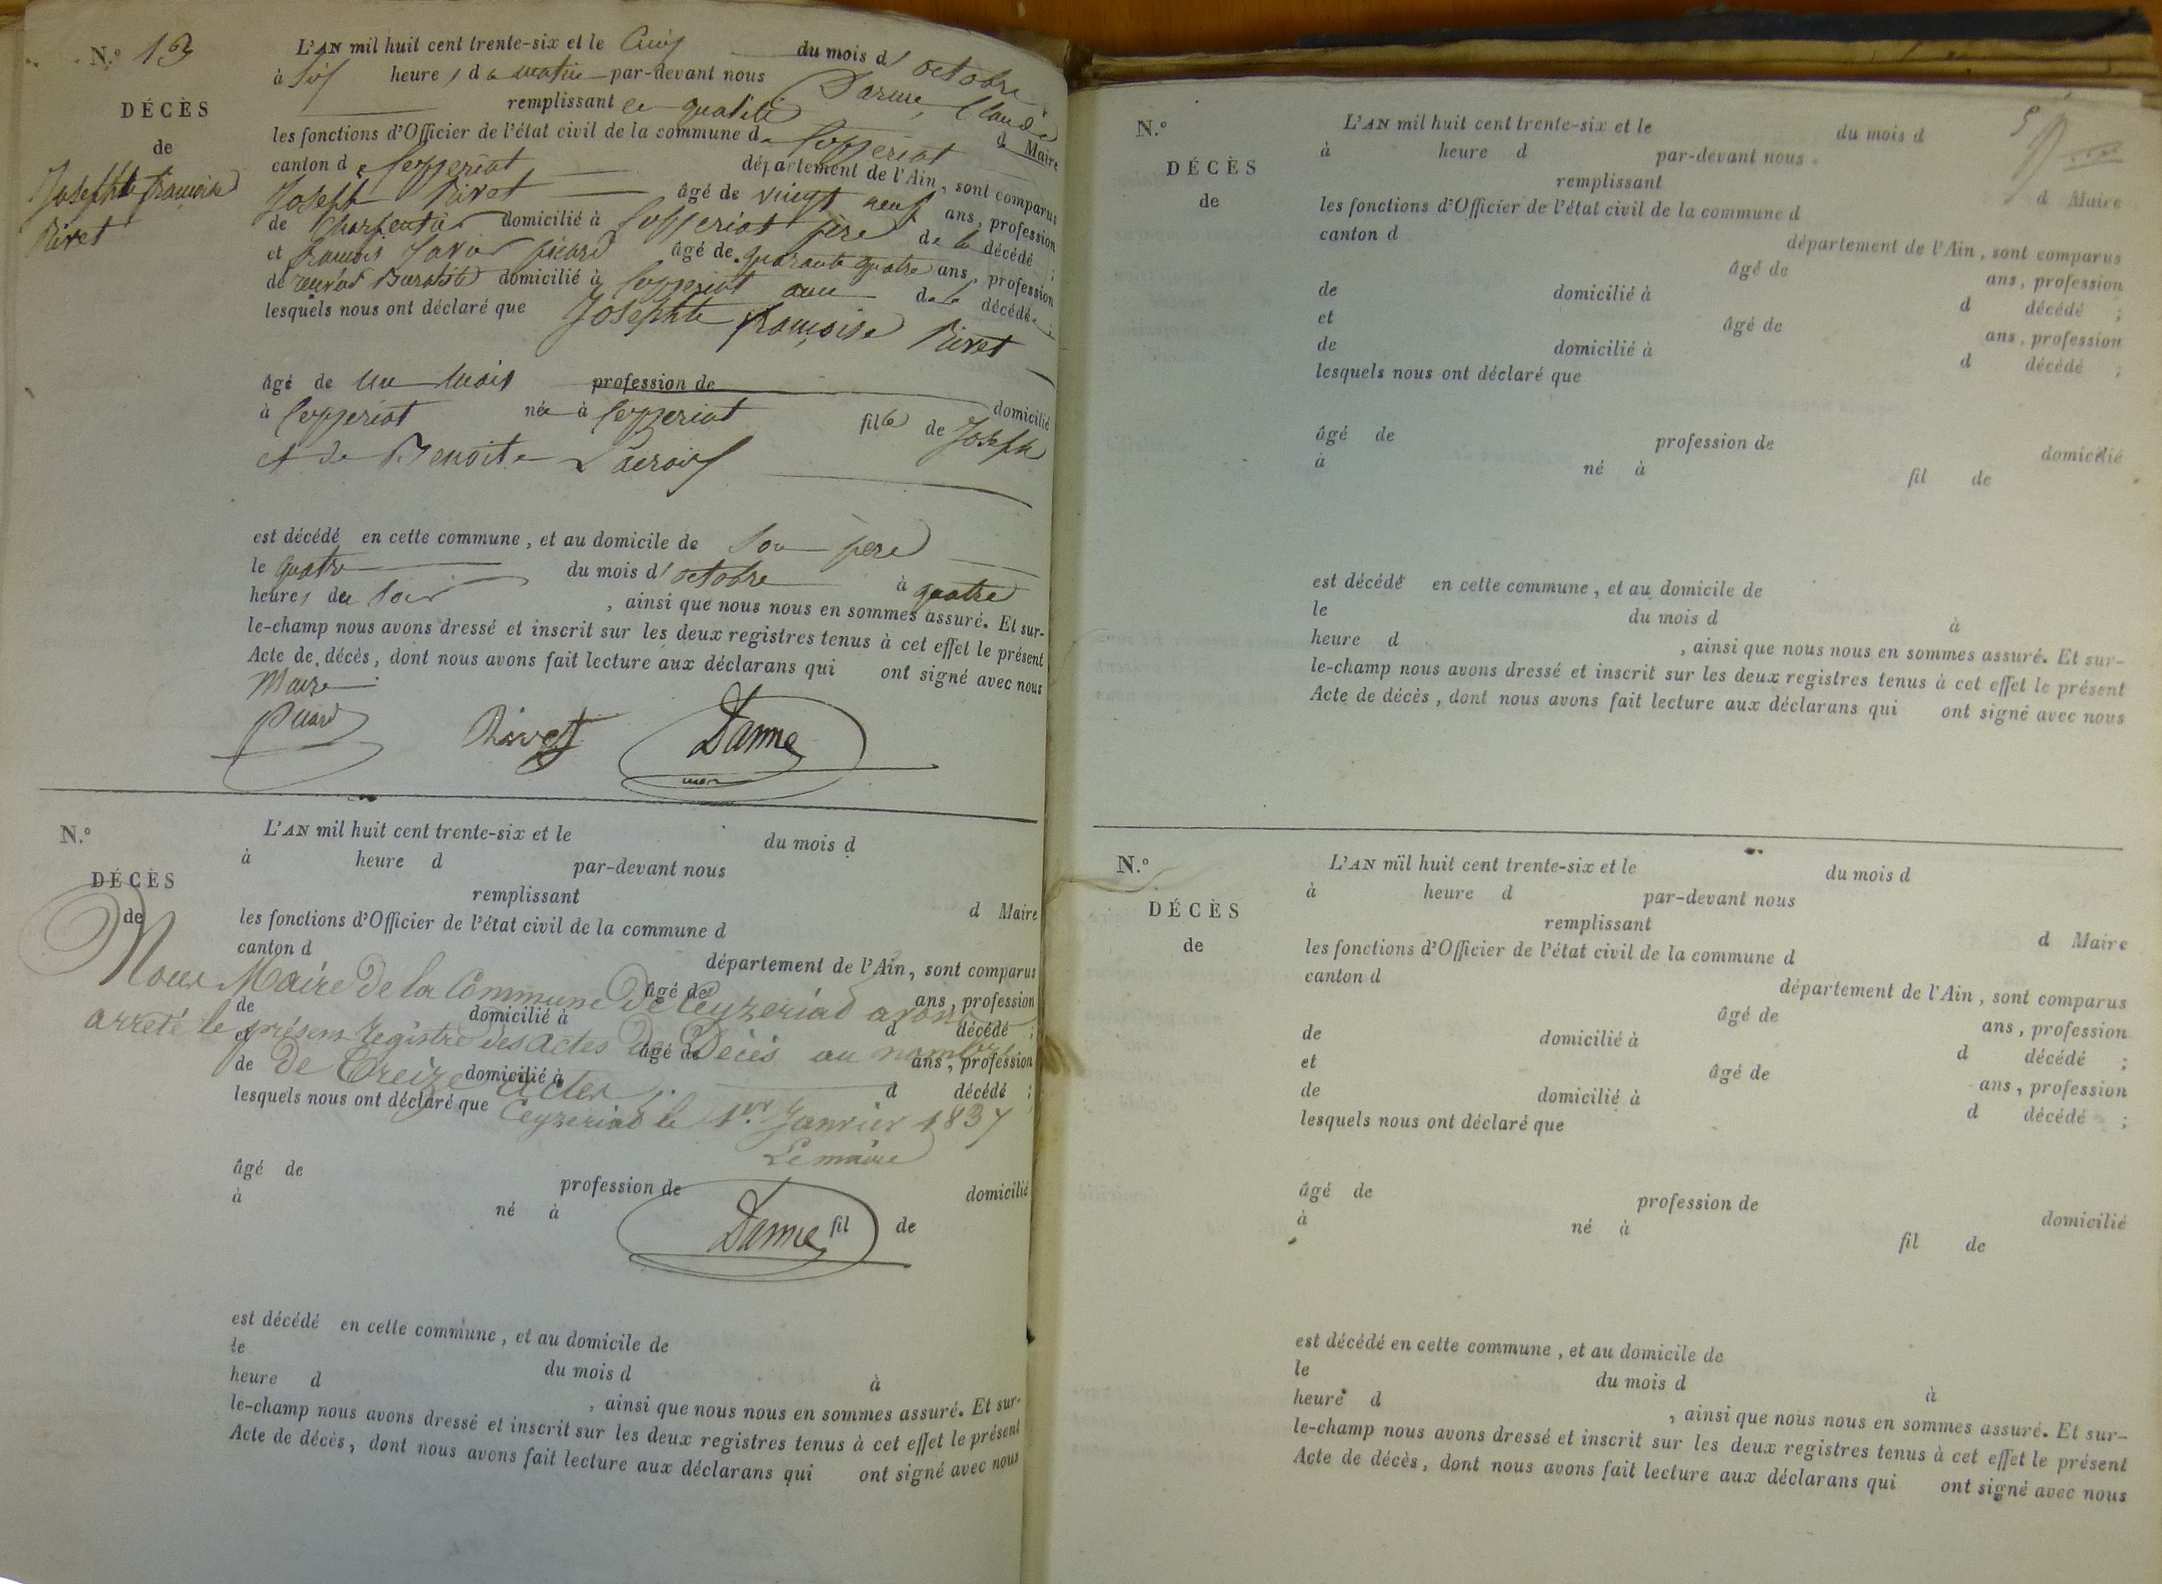 N.º 13
DÉCÈS
de
Josephte françoise
Rivet
L'AN mil huit cent trente-six et le Cinq du mois d'octobre
à six heures du matin par-devant nous Darme, Claude
remplissant en qualité de Maire
les fonctions d'Officier de l'état civil de la commune de Ceyzeriat
canton de Ceyzeriat département de l'Ain, sont comparus
Joseph Rivet âgé de vingt neuf ans, profession
de Charpentier domicilié à Ceyzeriat père de la décédée ;
et françois Xavier picard âgé de quarante quatre ans, profession
de domicilié à Ceyzeriat ami de la décédée ;
lesquels nous ont déclaré que Josephte françoise Rivet
âgé de un mois profession de domicilié
à Ceyzeriat née à Ceyzeriat fille de Joseph
et de Benoite Lacroix
est décédé en cette commune, et au domicile de son père
le quatre du mois d'octobre à quatre
heures du soir, ainsi que nous nous en sommes assuré. Et sur-
le-champ nous avons dressé et inscrit sur les deux registres tenus à cet effet le présent
Acte de décès, dont nous avons fait lecture aux déclarans qui ont signé avec nous
Maire
picard Rivet Darme
N.º
DÉCÈS
de
L'AN mil huit cent trente-six et le du mois d
à heure d par-devant nous
remplissant d Maire
les fonctions d'Officier de l'état civil de la commune d
canton d département de l'Ain, sont comparus
âgé de ans, profession
de domicilié à d décédé ;
et âgé de ans, profession
de domicilié à d décédé ;
lesquels nous ont déclaré que
Nous Maire de la Commune de Ceyzeriat avons
arreté le présent Registre des actes de Décès au nombre
de Treize actes.
Ceyzeriat le 1er Janvier 1837
Le maire
Darme
âgé de profession de domicilié
à né à fil de
est décédé en cette commune, et au domicile de
le du mois d à
heure d , ainsi que nous nous en sommes assuré. Et sur-
le-champ nous avons dressé et inscrit sur les deux registres tenus à cet effet le présent
Acte de décès, dont nous avons fait lecture aux déclarans qui ont signé avec nous
N.º
DÉCÈS
de
L'AN mil huit cent trente-six et le du mois d
à heure d par-devant nous
remplissant d Maire
les fonctions d'Officier de l'état civil de la commune d
canton d département de l'Ain, sont comparus
âgé de ans, profession
de domicilié à d décédé ;
et âgé de ans, profession
de domicilié à d décédé ;
lesquels nous ont déclaré que
âgé de profession de domicilié
à né à fil de
est décédé en cette commune, et au domicile de
le du mois d à
heure d , ainsi que nous nous en sommes assuré. Et sur-
le-champ nous avons dressé et inscrit sur les deux registres tenus à cet effet le présent
Acte de décès, dont nous avons fait lecture aux déclarans qui ont signé avec nous
N.º
DÉCÈS
de
L'AN mil huit cent trente-six et le du mois d
à heure d par-devant nous
remplissant d Maire
les fonctions d'Officier de l'état civil de la commune d
canton d département de l'Ain, sont comparus
âgé de ans, profession
de domicilié à d décédé ;
et âgé de ans, profession
de domicilié à d décédé ;
lesquels nous ont déclaré que
âgé de profession de domicilié
à né à fil de
est décédé en cette commune, et au domicile de
le du mois d à
heure d , ainsi que nous nous en sommes assuré. Et sur-
le-champ nous avons dressé et inscrit sur les deux registres tenus à cet effet le présent
Acte de décès, dont nous avons fait lecture aux déclarans qui ont signé avec nous